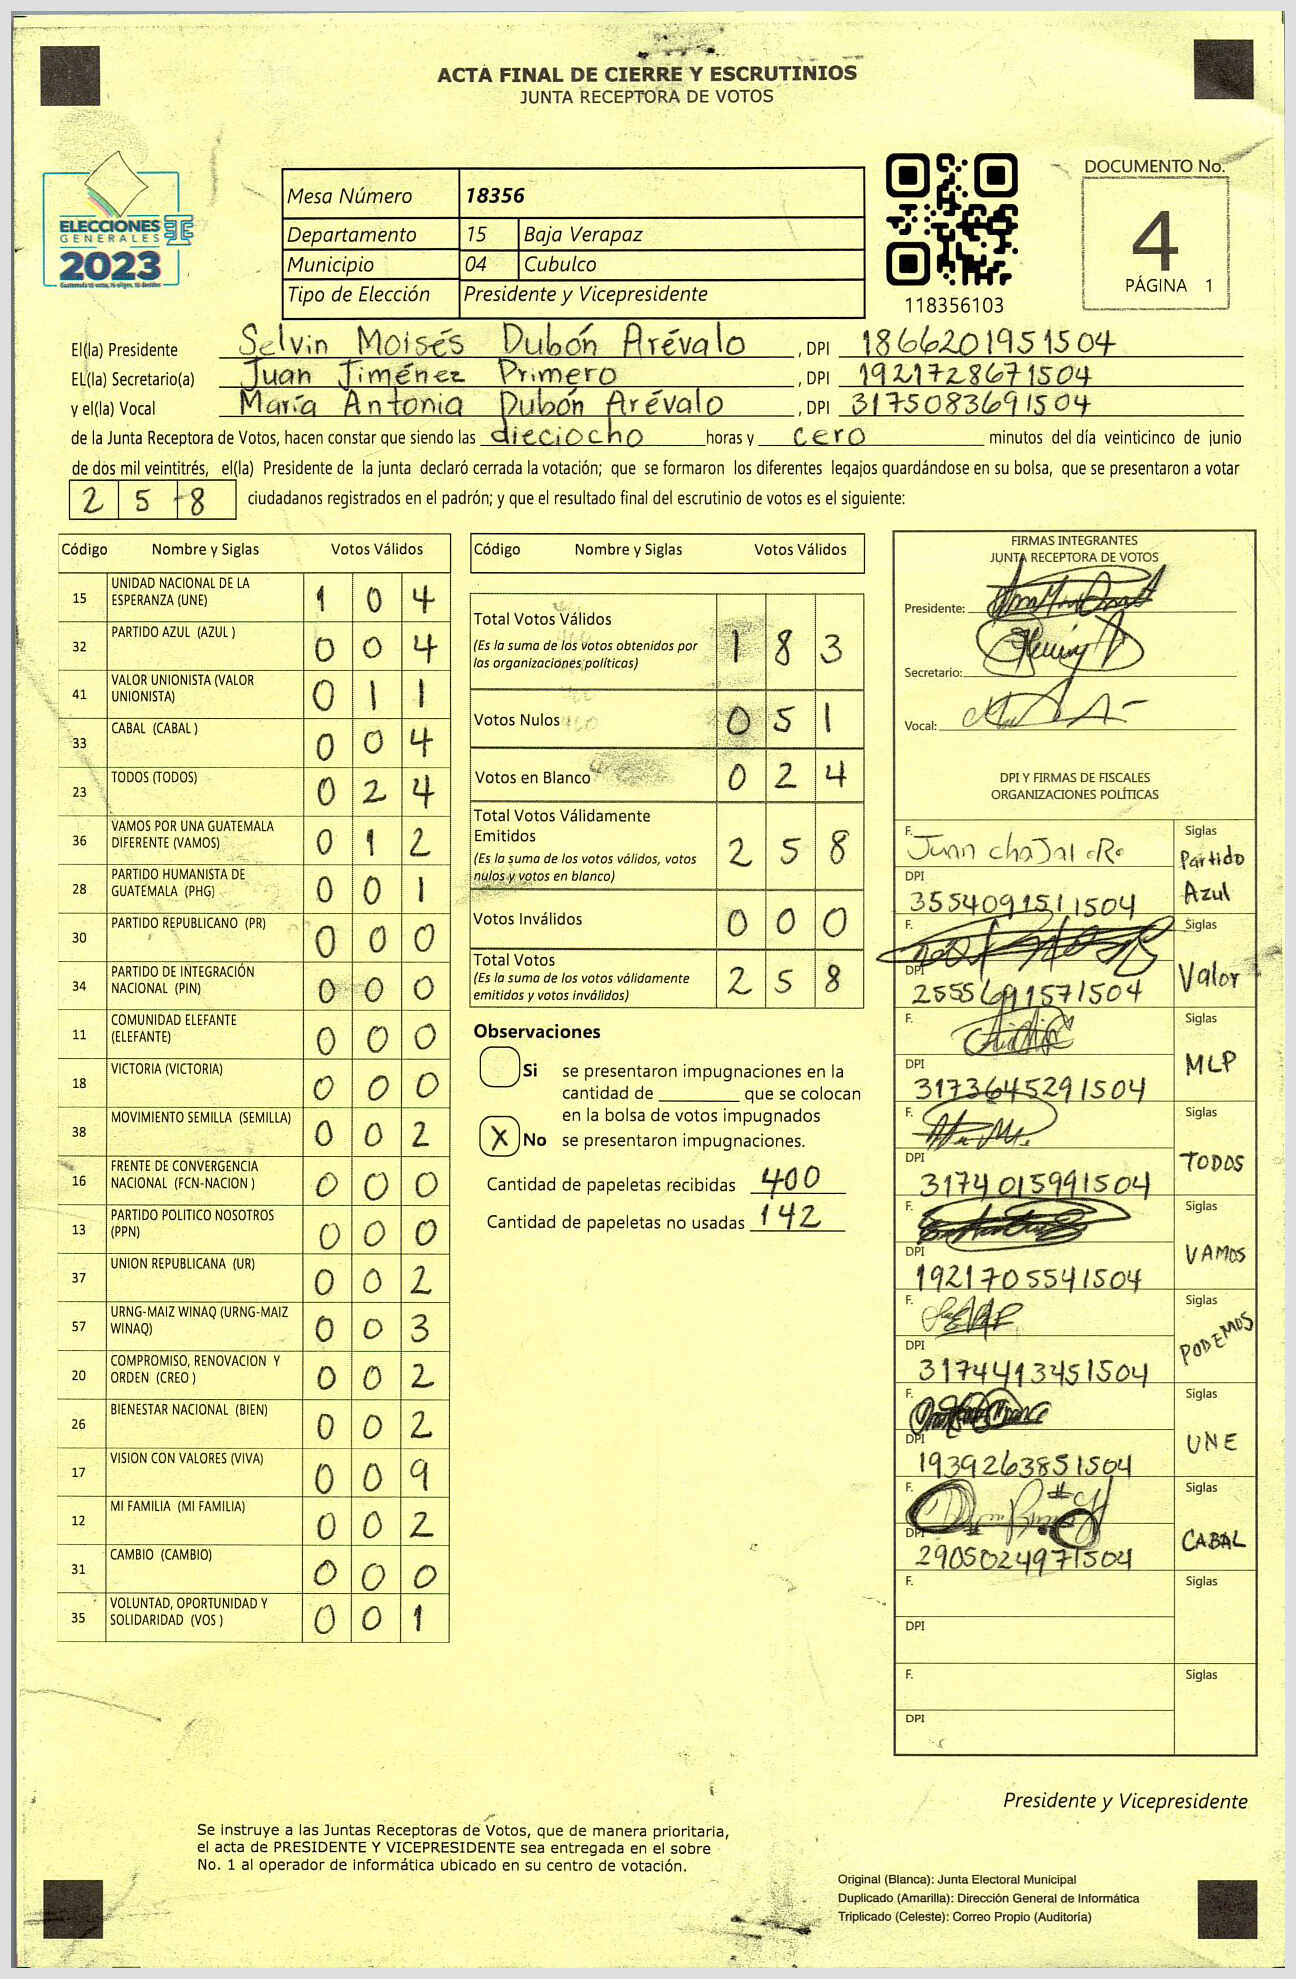 ACTA FINAL DE CIERRE Y ESCRUTINIOS
JUNTA RECEPTORA DE VOTOS
ELECCIONES
GENERALES
2023
Mesa Número 18356
Departamento 15 Baja Verapaz
Municipio 04 Cubulco
Tipo de Elección Presidente y Vicepresidente
118356103
DOCUMENTO No.
4
PÁGINA 1
El(la) Presidente Selvin Moisés Dubón Arévalo , DPI 1866201951504
EL(la) Secretario(a) Juan Jiménez Primero , DPI 1921728671504
y el(la) Vocal María Antonia Dubón Arévalo , DPI 3175083691504
de la Junta Receptora de Votos, hacen constar que siendo las dieciocho horas y cero minutos del día veinticinco de junio
de dos mil veintitrés, el(la) Presidente de la junta declaró cerrada la votación; que se formaron los diferentes legajos guardándose en su bolsa, que se presentaron a votar
2 5 8 ciudadanos registrados en el padrón; y que el resultado final del escrutinio de votos es el siguiente:
Código Nombre y Siglas Votos Válidos
15 UNIDAD NACIONAL DE LA ESPERANZA (UNE) 1 0 4
32 PARTIDO AZUL (AZUL ) 0 0 4
41 VALOR UNIONISTA (VALOR UNIONISTA) 0 1 1
33 CABAL (CABAL ) 0 0 4
23 TODOS (TODOS) 0 2 4
36 VAMOS POR UNA GUATEMALA DIFERENTE (VAMOS) 0 1 2
28 PARTIDO HUMANISTA DE GUATEMALA (PHG) 0 0 1
30 PARTIDO REPUBLICANO (PR) 0 0 0
34 PARTIDO DE INTEGRACIÓN NACIONAL (PIN) 0 0 0
11 COMUNIDAD ELEFANTE (ELEFANTE) 0 0 0
18 VICTORIA (VICTORIA) 0 0 0
38 MOVIMIENTO SEMILLA (SEMILLA) 0 0 2
16 FRENTE DE CONVERGENCIA NACIONAL (FCN-NACION ) 0 0 0
13 PARTIDO POLITICO NOSOTROS (PPN) 0 0 0
37 UNION REPUBLICANA (UR) 0 0 2
57 URNG-MAIZ WINAQ (URNG-MAIZ WINAQ) 0 0 3
20 COMPROMISO, RENOVACION Y ORDEN (CREO ) 0 0 2
26 BIENESTAR NACIONAL (BIEN) 0 0 2
17 VISION CON VALORES (VIVA) 0 0 9
12 MI FAMILIA (MI FAMILIA) 0 0 2
31 CAMBIO (CAMBIO) 0 0 0
35 VOLUNTAD, OPORTUNIDAD Y SOLIDARIDAD (VOS ) 0 0 1
Código Nombre y Siglas Votos Válidos
Total Votos Válidos 1 8 3
(Es la suma de los votos obtenidos por
las organizaciones políticas)
Votos Nulos 0 5 1
Votos en Blanco 0 2 4
Total Votos Válidamente
Emitidos 2 5 8
(Es la suma de los votos válidos, votos
nulos y votos en blanco)
Votos Inválidos 0 0 0
Total Votos 2 5 8
(Es la suma de los votos válidamente
emitidos y votos inválidos)
Observaciones
Si se presentaron impugnaciones en la
cantidad de ________ que se colocan
en la bolsa de votos impugnados
X No se presentaron impugnaciones.
Cantidad de papeletas recibidas 400
Cantidad de papeletas no usadas 142
FIRMAS INTEGRANTES
JUNTA RECEPTORA DE VOTOS
Presidente:
Secretario:
Vocal:
DPI Y FIRMAS DE FISCALES
ORGANIZACIONES POLÍTICAS
F. Juan chaJal Siglas
Partido
DPI Azul
3554091511504
F. Siglas
DPI Valor
2555699157 1504
F. Siglas
DPI MLP
3173645291504
F. Siglas
DPI TODOS
3174015991504
F. Siglas
DPI VAMOS
1921705541504
F. Siglas
DPI PODEMOS
3174413451504
F. Siglas
DPI UNE
1939263851504
F. Siglas
DPI CABAL
2905024971504
F. Siglas
DPI
F. Siglas
DPI
Presidente y Vicepresidente
Se instruye a las Juntas Receptoras de Votos, que de manera prioritaria,
el acta de PRESIDENTE Y VICEPRESIDENTE sea entregada en el sobre
No. 1 al operador de informática ubicado en su centro de votación.
Original (Blanca): Junta Electoral Municipal
Duplicado (Amarilla): Dirección General de Informática
Triplicado (Celeste): Correo Propio (Auditoría)